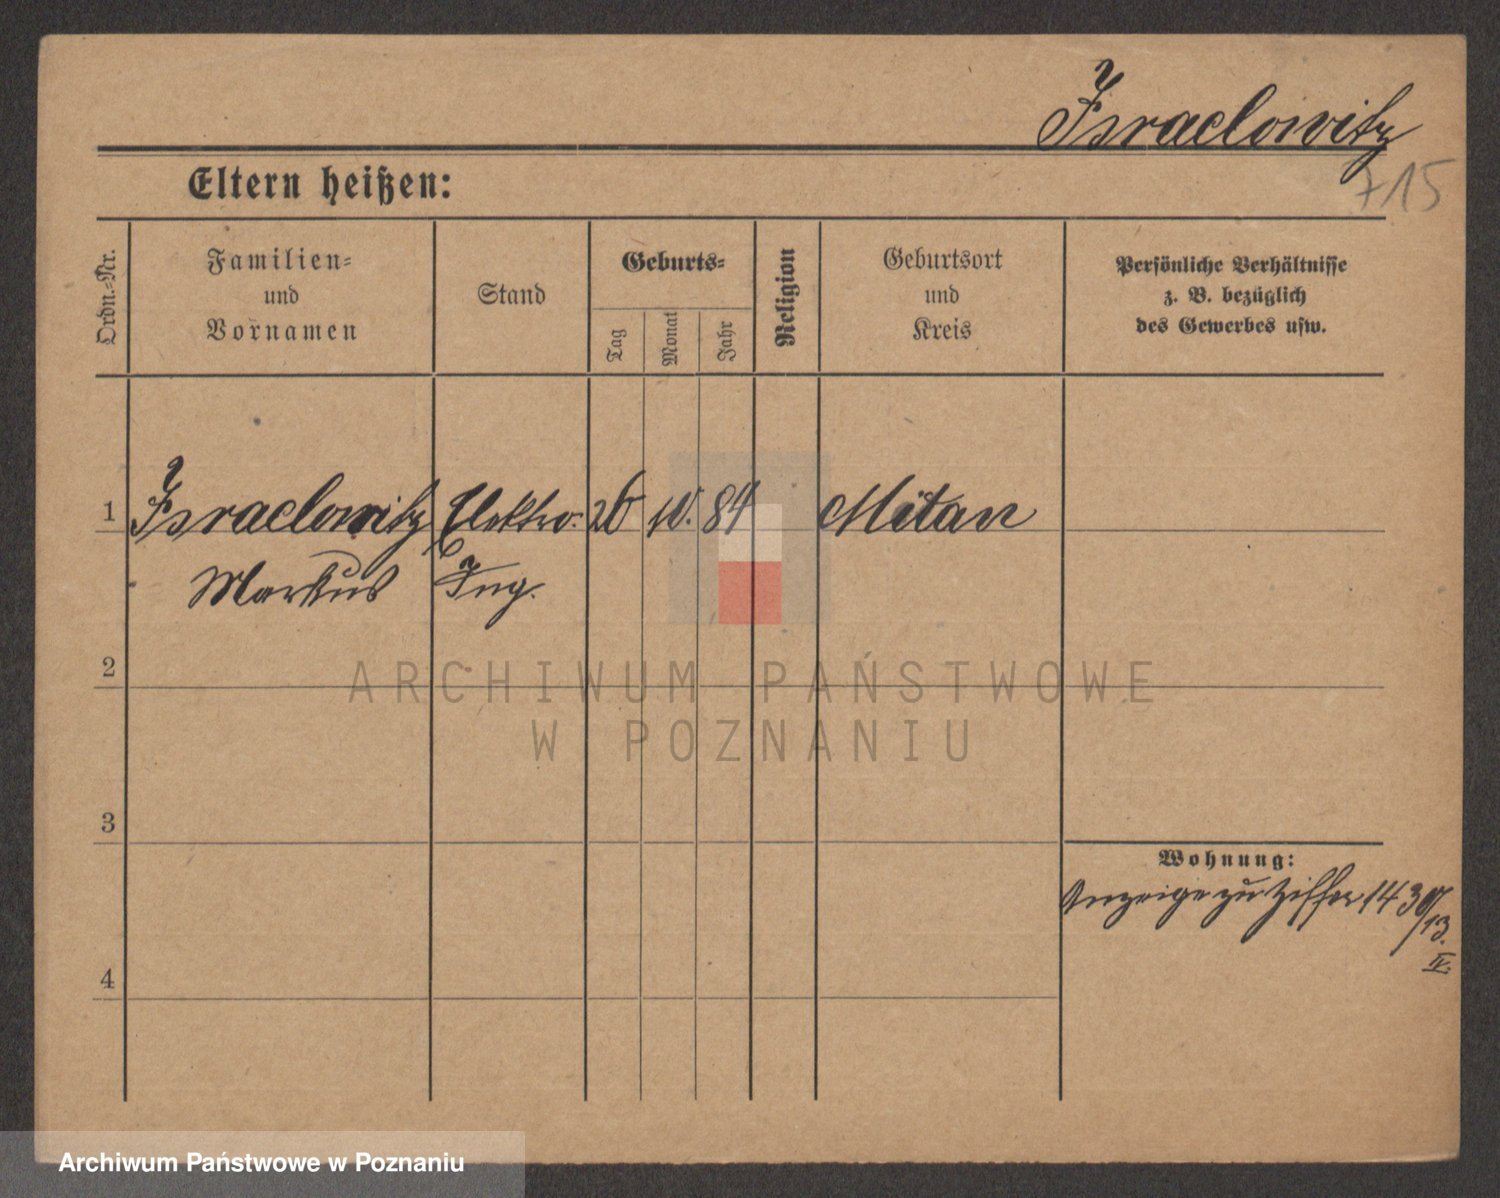 Israelowitz
715
Eltern heißen:
Ordn.-Nr.
Familien-
und
Vornamen
Stand
Geburts-
Tag
Monat
Jahr
Religion
Geburtsort
und
Kreis
Persönliche Verhältnisse
z. B. bezüglich
des Gewerbes usw.
1 Israelowitz Elektro. 26 10. 84 Mitau
Markus Ing.
2
ARCHIWUM PAŃSTWOWE
W POZNANIU
3
Wohnung:
Anzeige zu Ziffer 1430/13.
IV.
4
Archiwum Państwowe w Poznaniu